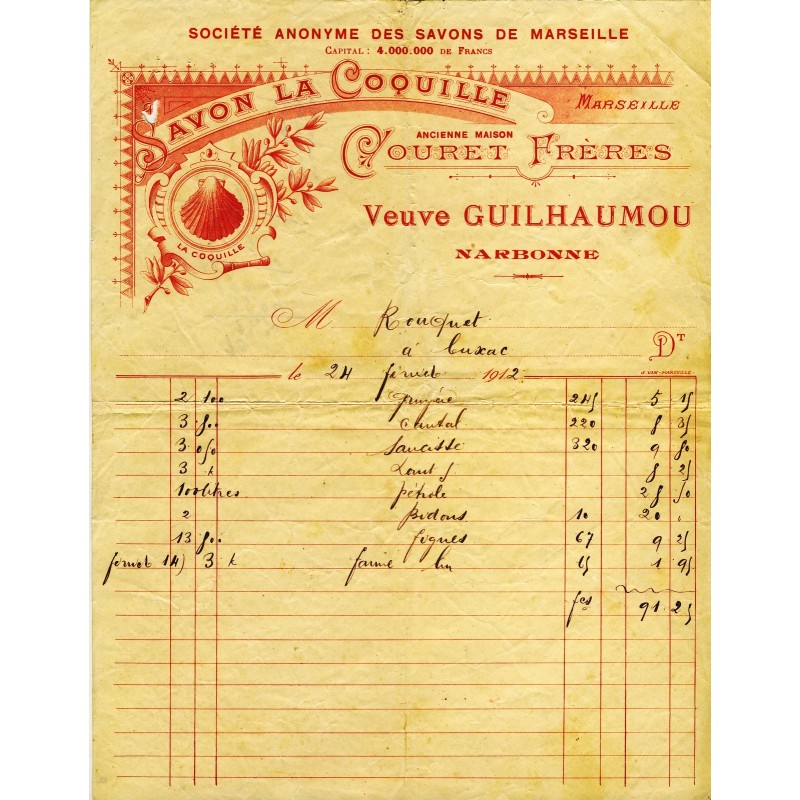 SOCIÉTÉ ANONYME DES SAVONS DE MARSEILLE
CAPITAL : 4.000.000 DE FRANCS
SAVON LA COQUILLE
MARSEILLE
ANCIENNE MAISON
COURET FRÈRES
LA COQUILLE
Veuve GUILHAUMOU
NARBONNE
M Rouquet
à Cuxac
DT
le 24 1912
J. VAN-MARSEILLE
2 100 gruyère 245 5 15
3 800 cantal 220 8 35
3 050 saucisse 320 9 80
3 k 8 25
100 litres pétrole 28 50
2 Bidons 10 20 "
13 800 figues 67 9 25
14) 3 k farine lin 1 95
fcs 91.25